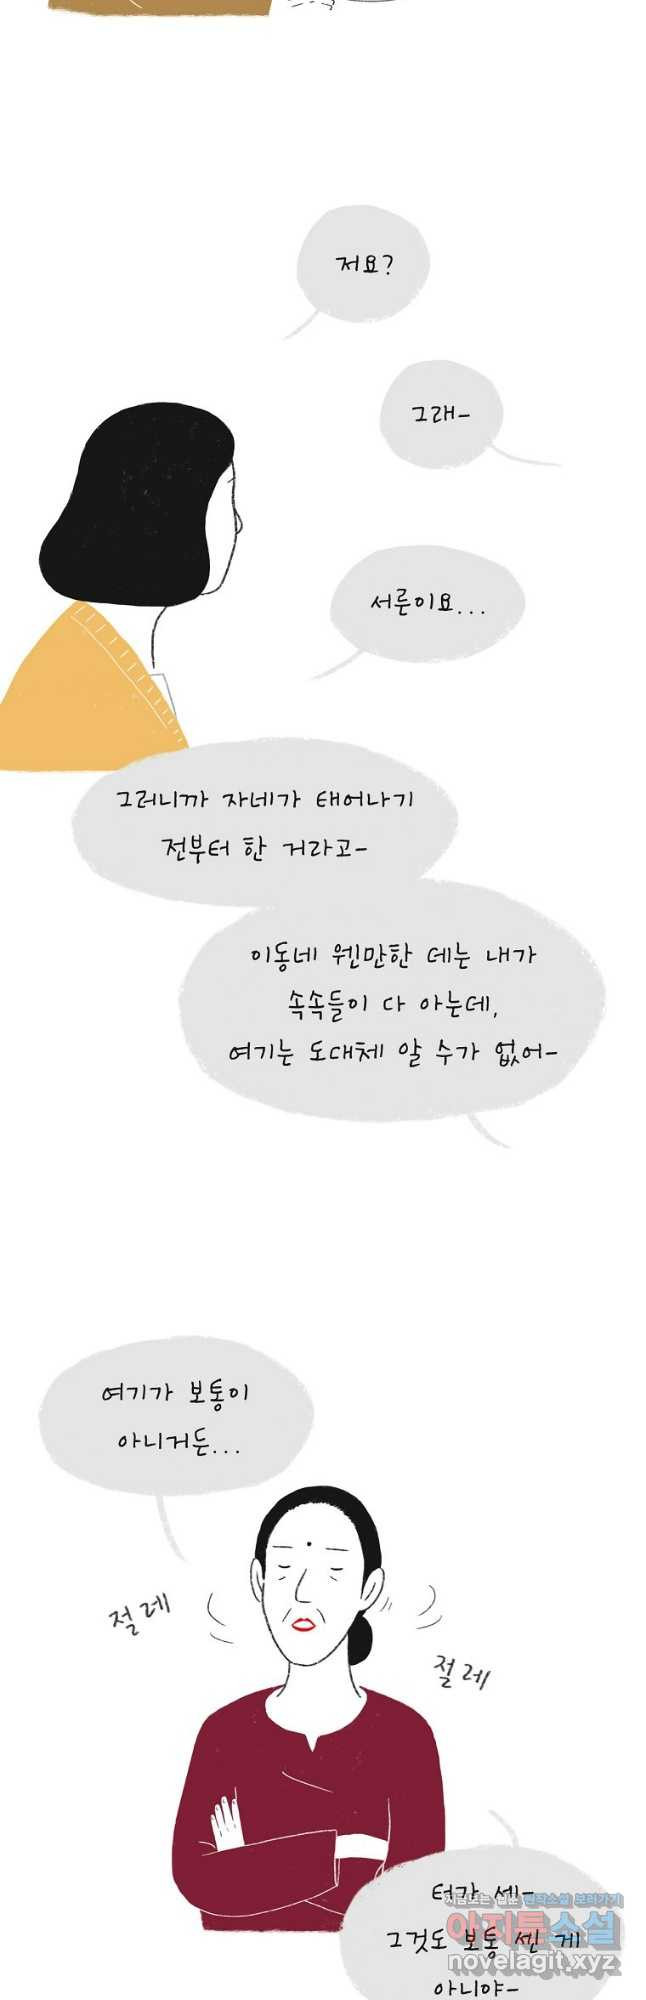 저요?
그래-
서른이요...
그러니까 자네가 태어나기
전부터 한 거라고-
이동네 웬만한 데는 내가
속속들이 다 아는데,
여기는 도대체 알 수가 없어-
여기가 보통이
아니거든...
절레
절레
터가 세-
지금보는 웹툰 원작소설 보러가기
아지툰소설
그것도 보통 센 게
novelagit.xyz
아니야-